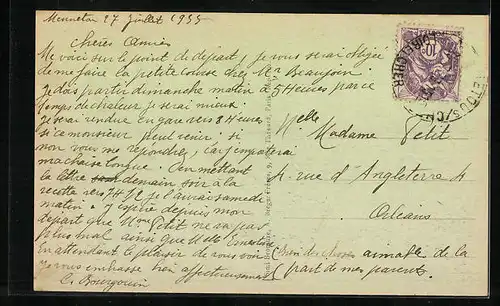 Mennetou 27 Juillet 1935
Chères Amies
Me voici sur le point de départ, je vous serai obligée
de me faire la petite course chez Mr Beaujoin
je dois partir dimanche matin à 5 Heures parce
temps de chaleur je serai mieux.
je serai rendue en gare vers 8 Heures
si ce monsieur peut venir. si
non vous me repondrez, car j'emporterai
ma chaise longue. En mettant
la lettre demain soir à la
recette vers 7H je l'aurai samedi
matin. J'espère depuis mon
départ que Mme Petit ne va pas
plus mal ainsi que Melle Ernestine
En attendant le plaisir de vous voir
Je vous embrasse bien affectueusement
L. Bourgouin
Melle
Madame Petit
4 rue d'Angleterre 4
Orléans
bien des choses aimable de la
part de mes parents.
10